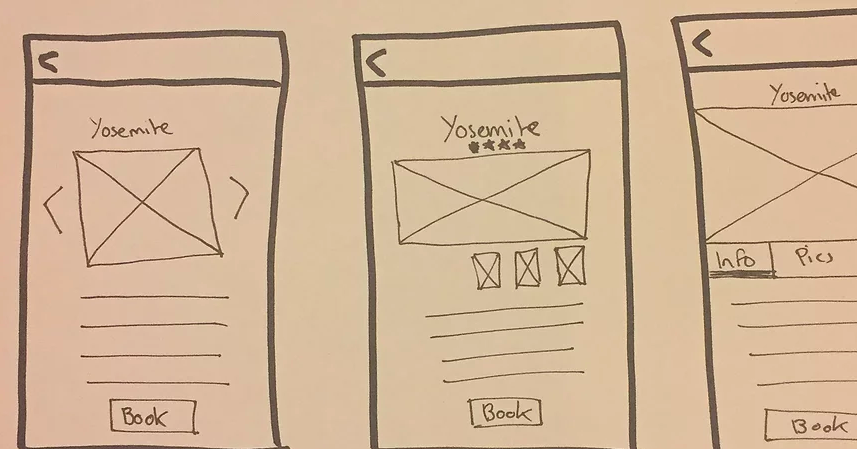 Yosemite
Book
Yosemite
Book
Yosemite
Info Pics
Book